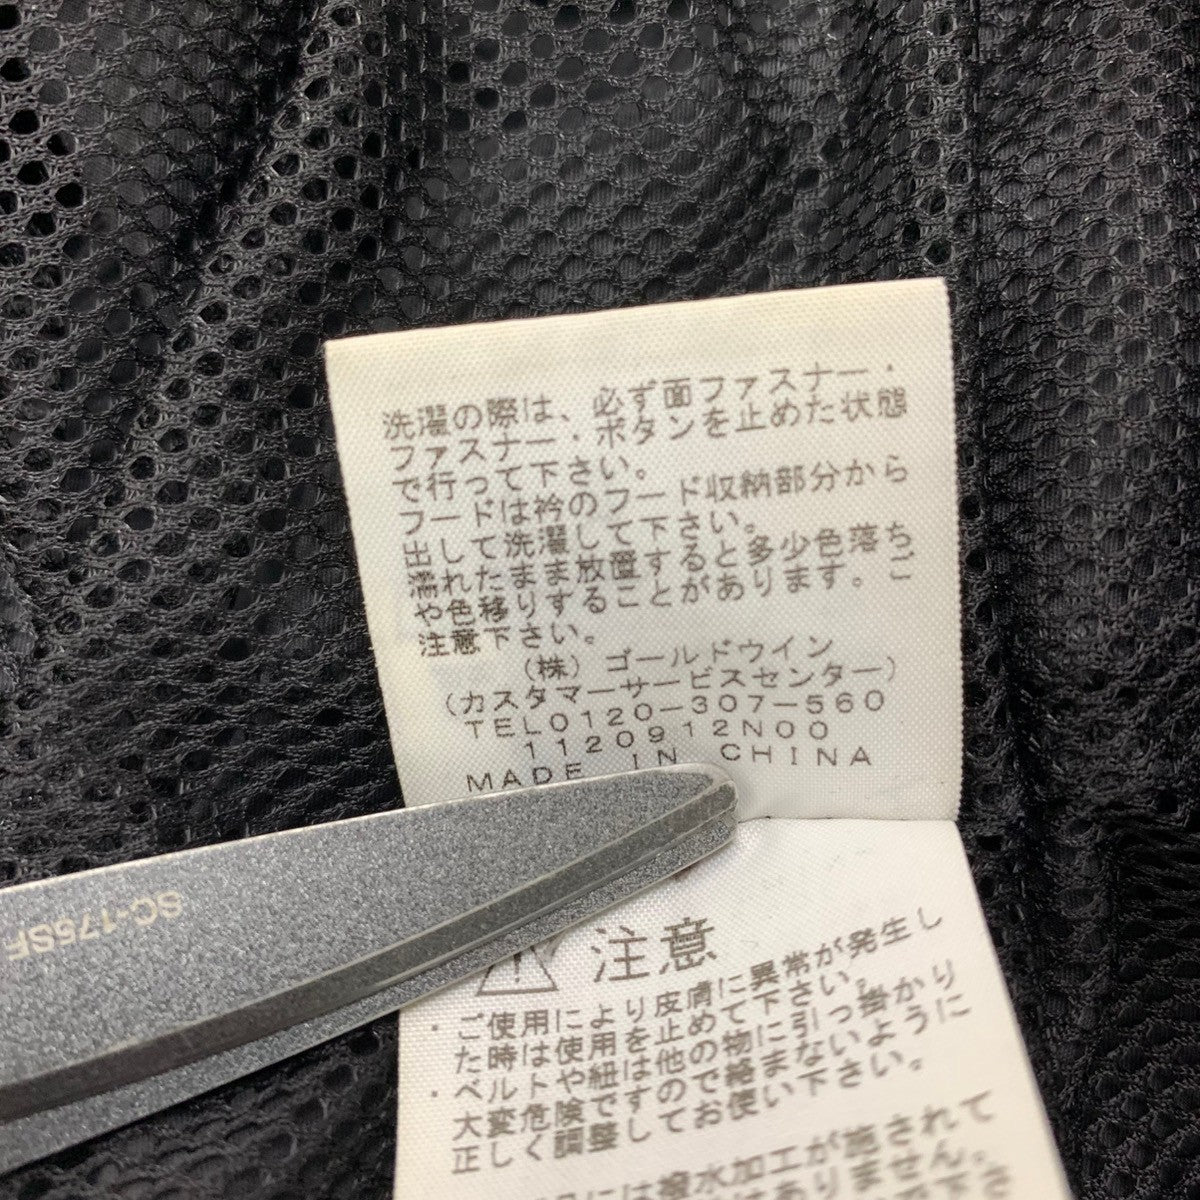 洗濯の際は、必ず面ファスナー・
ファスナー・ボタンを止めた状態
で行って下さい。
フードは衿のフード収納部分から
出して洗濯して下さい。
濡れたまま放置すると多少色落ち
や色移りすることがあります。ご
注意下さい。
(株)ゴールドウイン
(カスタマーサービスセンター)
TEL0120-307-560
11209 12N00
MADE IN CHINA
SC-175SF
注意
・ご使用により皮膚に異常が発生し
た時は使用を止めて下さい。
・ベルトや紐は他の物に引っ掛かり
大変危険ですので絡まないように
正しく調整してお使い下さい。
には撥水加工が施されて
はありません。